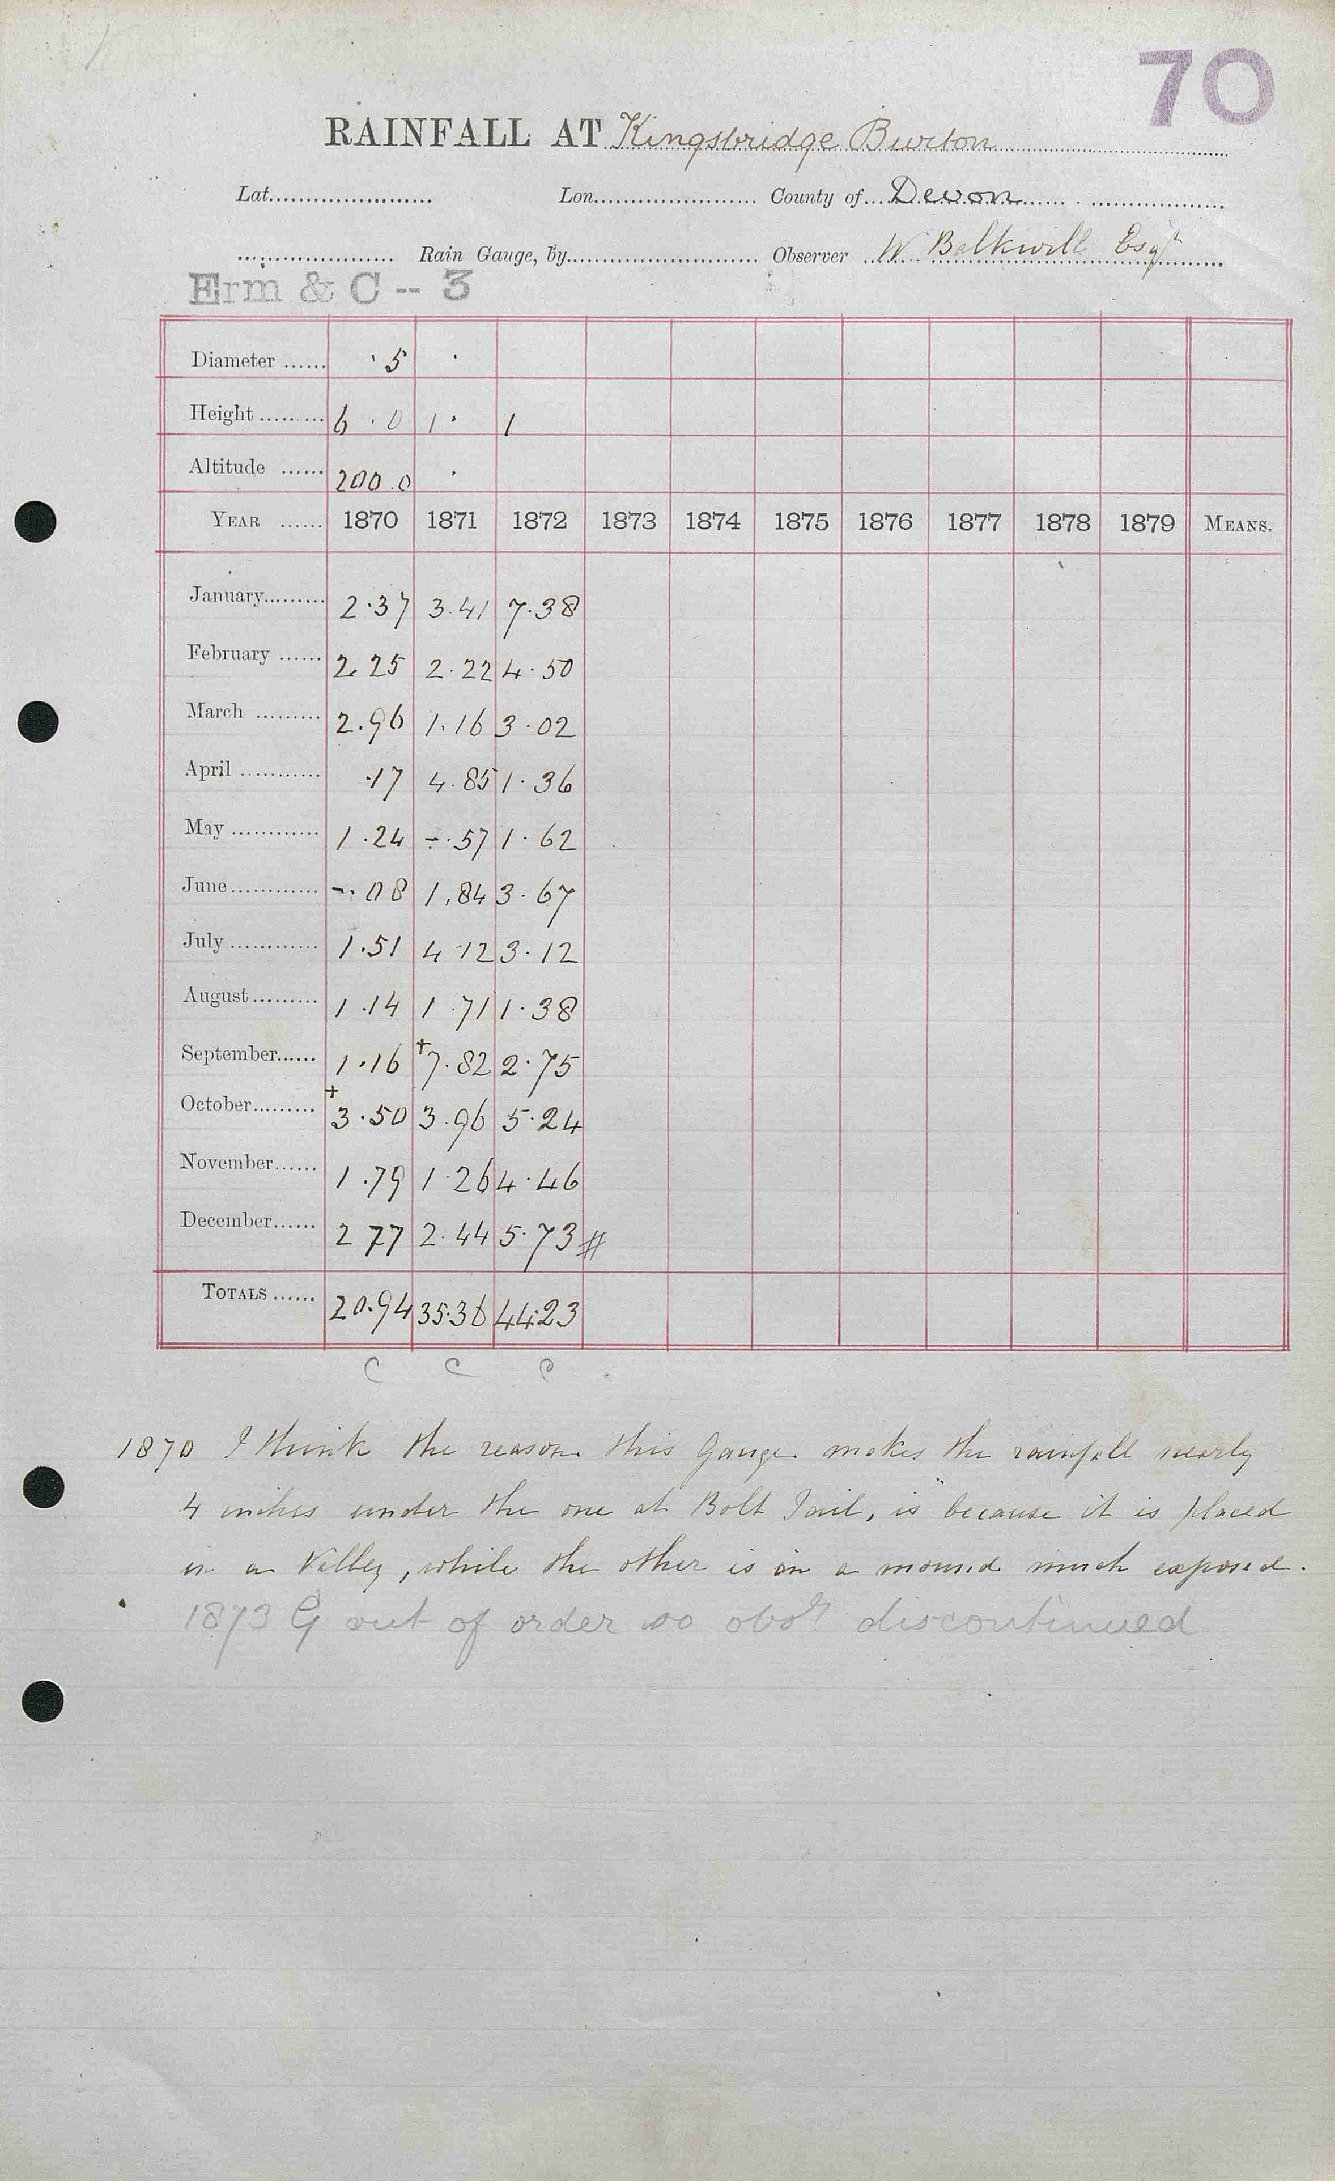 70
RAINFALL AT Kingsbridge Burton
Lat. Lon. County of Devon
Rain Gauge, by Observer W Balkwill Esqr
Erm & C -- 3
Diameter ...... 5
Height ......... 6.0 1. 1
Altitude ...... 200.0
YEAR ...... 1870 1871 1872 1873 1874 1875 1876 1877 1878 1879 MEANS.
January......... 2.37 3.41 7.38
February ...... 2.25 2.22 4.50
March ......... 2.96 1.16 3.02
April ............ .17 4.85 1.36
May ............ 1.24 -.57 1.62
June............ -.08 1.84 3.67
July ............ 1.51 4.12 3.12
August......... 1.14 1.71 1.38
September...... 1.16 +7.82 2.75
October......... +3.50 3.96 5.24
November...... 1.79 1.26 4.46
December...... 2.77 2.44 5.73 #
TOTALS ...... 20.94 35.36 44.23
C C C
1870 I think the reason this Gauge makes the rainfall nearly
4 inches under the one at Bolt Tail, is because it is placed
in a Valley, while the other is on a mound much exposed.
1873 G out of order so obsr discontinued